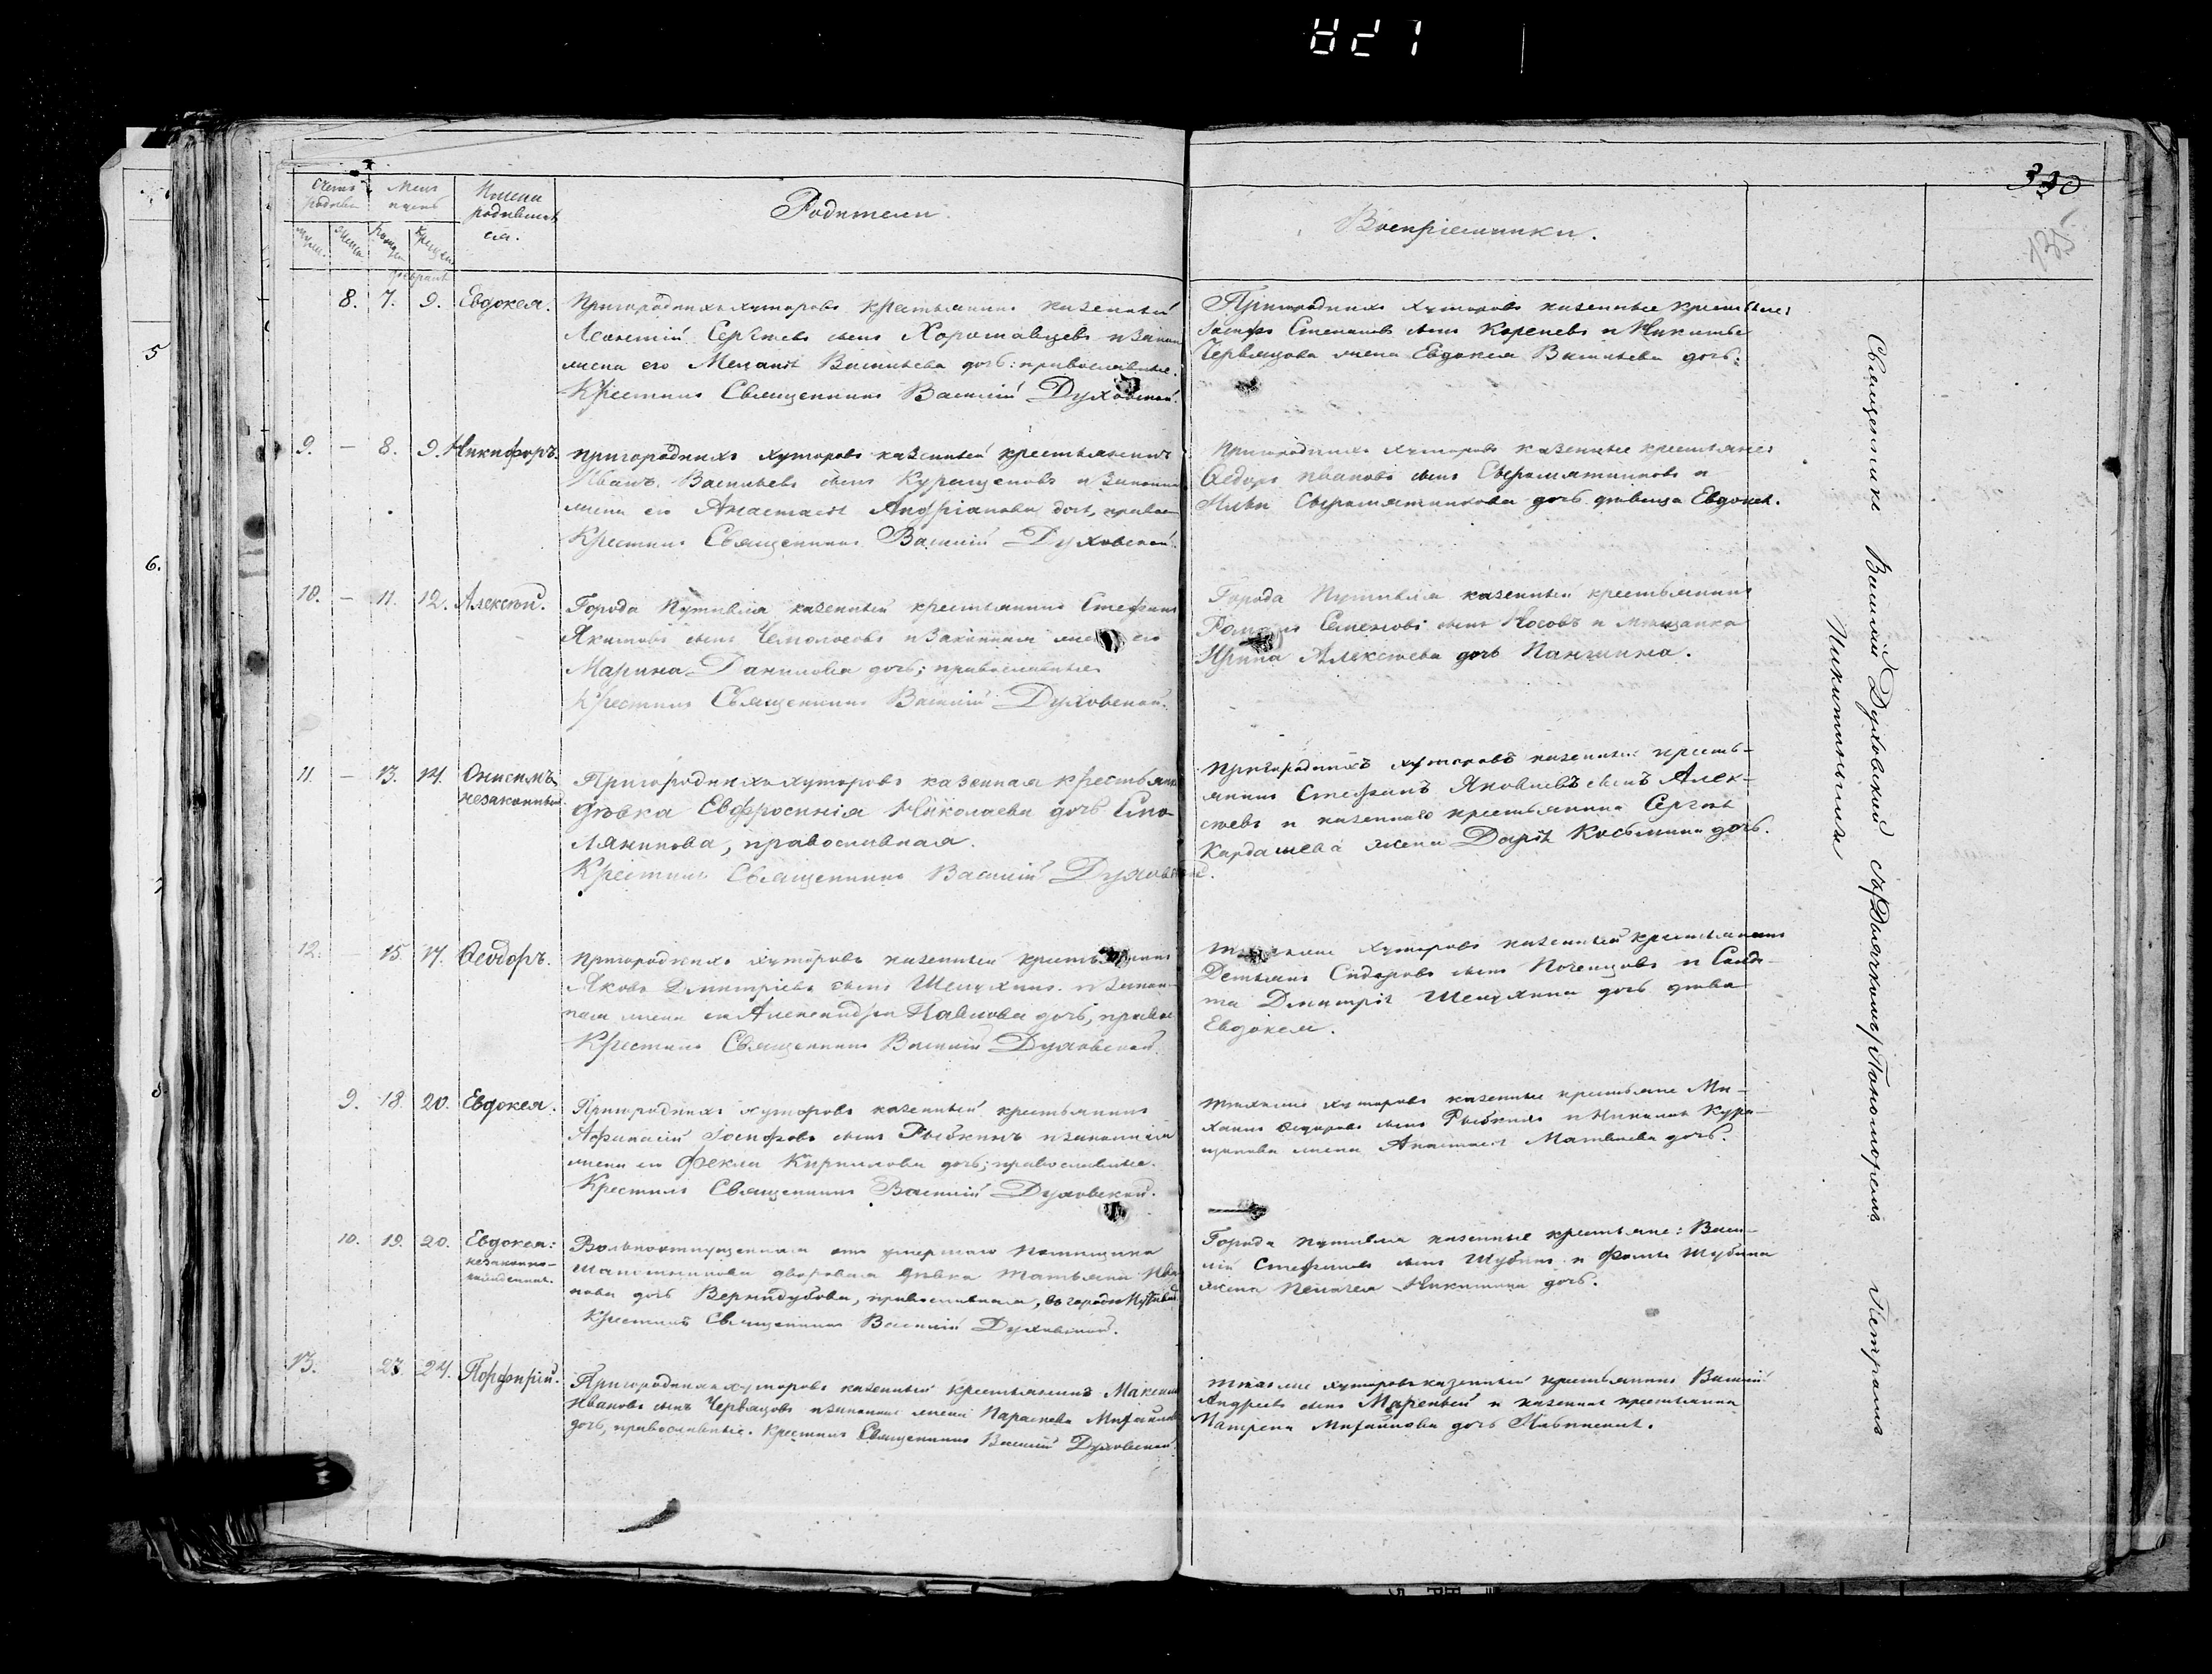 821
330
135
Счетъ родивш.
Мѣс. и день
Имена родившихся.
Родители.
Воспріемники.
8. 7. 9. Евдокея.
Пригородныхъ хуторовъ крестьянинъ казенный
Леонтій Сергѣевъ сынъ Хороша́вцевъ и закон
жена его Меланія Васильева дочь: православные.
Крестилъ Священникъ Василій Духовской.
Пригородныхъ хуторовъ казенные крестьяне:
Іосифъ Степановъ сынъ Кореневъ и Никиты
Червяцова жена Евдокея Васильева дочь.
9. — 8. 9. Никифоръ.
Пригородныхъ хуторовъ казенный крестьянинъ
Иванъ Васильевъ сынъ Курищеновъ и законная
жена его Анастасія Андріанова дочь, правос
Крестилъ Священникъ Василій Духовской.
Пригородныхъ хуторовъ казенные крестьяне:
Ѳедоръ Ивановъ сынъ Сыромятниковъ и
Ильи Сыромятникова дочь дѣвица Евдокея.
10. — 11. 12. Алексѣй.
Города Путивля казенный крестьянинъ Стефанъ
Якимовъ сынъ Чемолосовъ и законная жена его
Марина Данилова дочь; православные.
Крестилъ Священникъ Василій Духовской.
Города Путивля казенный крестьянинъ
Романъ Семеновъ сынъ Носовъ и мѣщанка
Ирина Алексѣева дочь Паншина.
11. — 13. 14. Онисимъ незаконный.
Пригородныхъ хуторовъ казенная крестьянк
дѣвка Евфросинія Николаева дочь Смо-
лянинова, православная.
Крестилъ Священникъ Василій Духовской.
Пригородныхъ хуторовъ казенный кресть-
янинъ Стефанъ Яковлевъ сынъ Алек-
сѣевъ и казеннаго крестьянина Сергія
Кардашева жена Дарія Косьмина дочь.
12. — 15. 17. Ѳеодоръ.
Пригородныхъ хуторовъ казенный крестьянинъ
Яковъ Дмитріевъ сынъ Шелухинъ и закон-
ная жена его Александра Павлова дочь, правос
Крестилъ Священникъ Василій Духовской.
Тѣхъ же хуторовъ казенный крестьянинъ
Демьянъ Сидоровъ сынъ Поченцовъ и Солда-
та Дмитрія Шелухина дочь дѣвка
Евдокея.
9. 18. 20. Евдокея.
Пригородныхъ хуторовъ казенный крестьянинъ
Афанасій Іосифовъ сынъ Рыбкинъ и законная
жена его Фекла Кирилова дочь; православные.
Крестилъ Священникъ Василій Духовской.
Тѣхъ же хуторовъ казенные крестьяне Ми-
хаилъ Ѳедоровъ сынъ Рыбкинъ и Николая Кури-
щенова жена Анастасія Матвѣева дочь.
10. 19. 20. Евдокея: незаконно-рожденная.
Вольноотпущенная отъ умершаго помѣщика
дворовая дѣвка Татьяна Ива
нова дочь Вернидубова, православная, въ городѣ Путивлѣ
Крестилъ Священникъ Василій Духовской.
Города Путивля казенные крестьяне: Васи-
лій Стефановъ сынъ Шубинъ и Фомы Шубина
жена Пелагея Никитина дочь.
13. 23. 24. Порфирій.
Пригородныхъ хуторовъ казенный крестьянинъ Максимъ
Ивановъ сынъ Червяцовъ и законная жена Параскева Михайлова
дочь, православные. Крестилъ Священникъ Василій Духовской.
Тѣхъ же хуторовъ казенный крестьянинъ Василій
Андреевъ сынъ Маренъ и казенная крестьянка
Михайлова дочь
Священникъ Василій Духовскій съ Дьячкомъ Пономоремъ Петромъ
Никитинымъ
5
6.
7
8